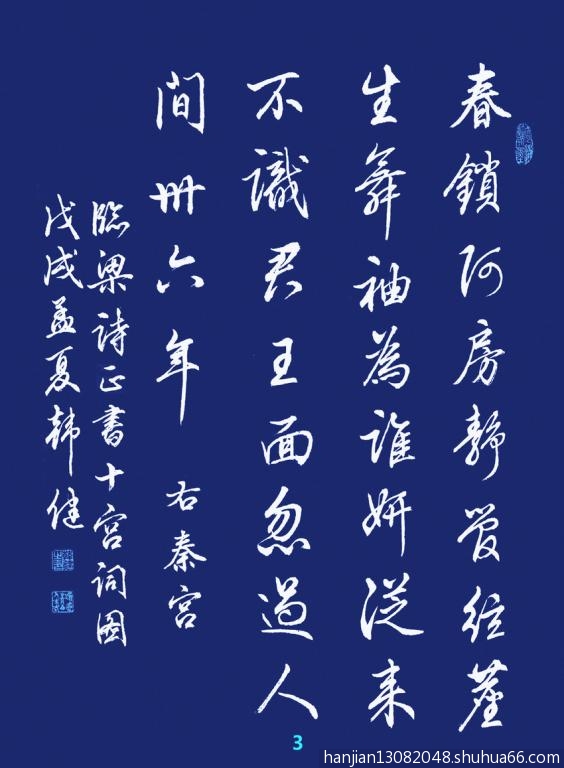 春鎖阿房靜管絃塵
生舞袖為誰妍從來
不識君王面忽過人
間卅六年 右秦宮
臨梁詩正書十宮詞圖
戊戌孟夏韓健
3
hanjian13082048.shuhua66.com